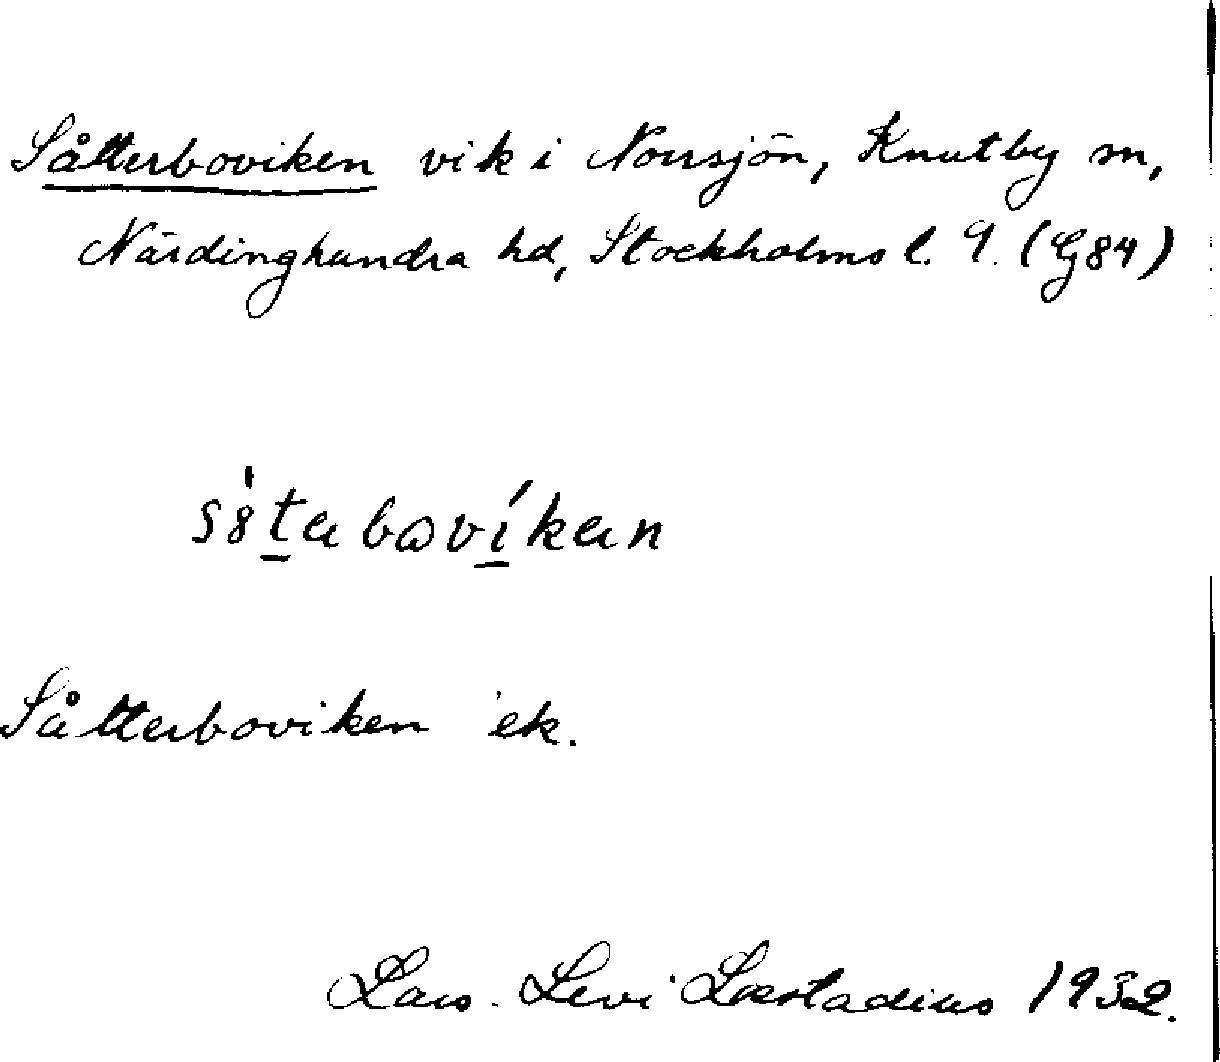 Såtterboviken vik i Norrsjön, Knutby sn,
Närdinghundra hd, Stockholms l. 9. (G84)
Såtterboviken ek.
Lars. Levi Læstadius 1932.